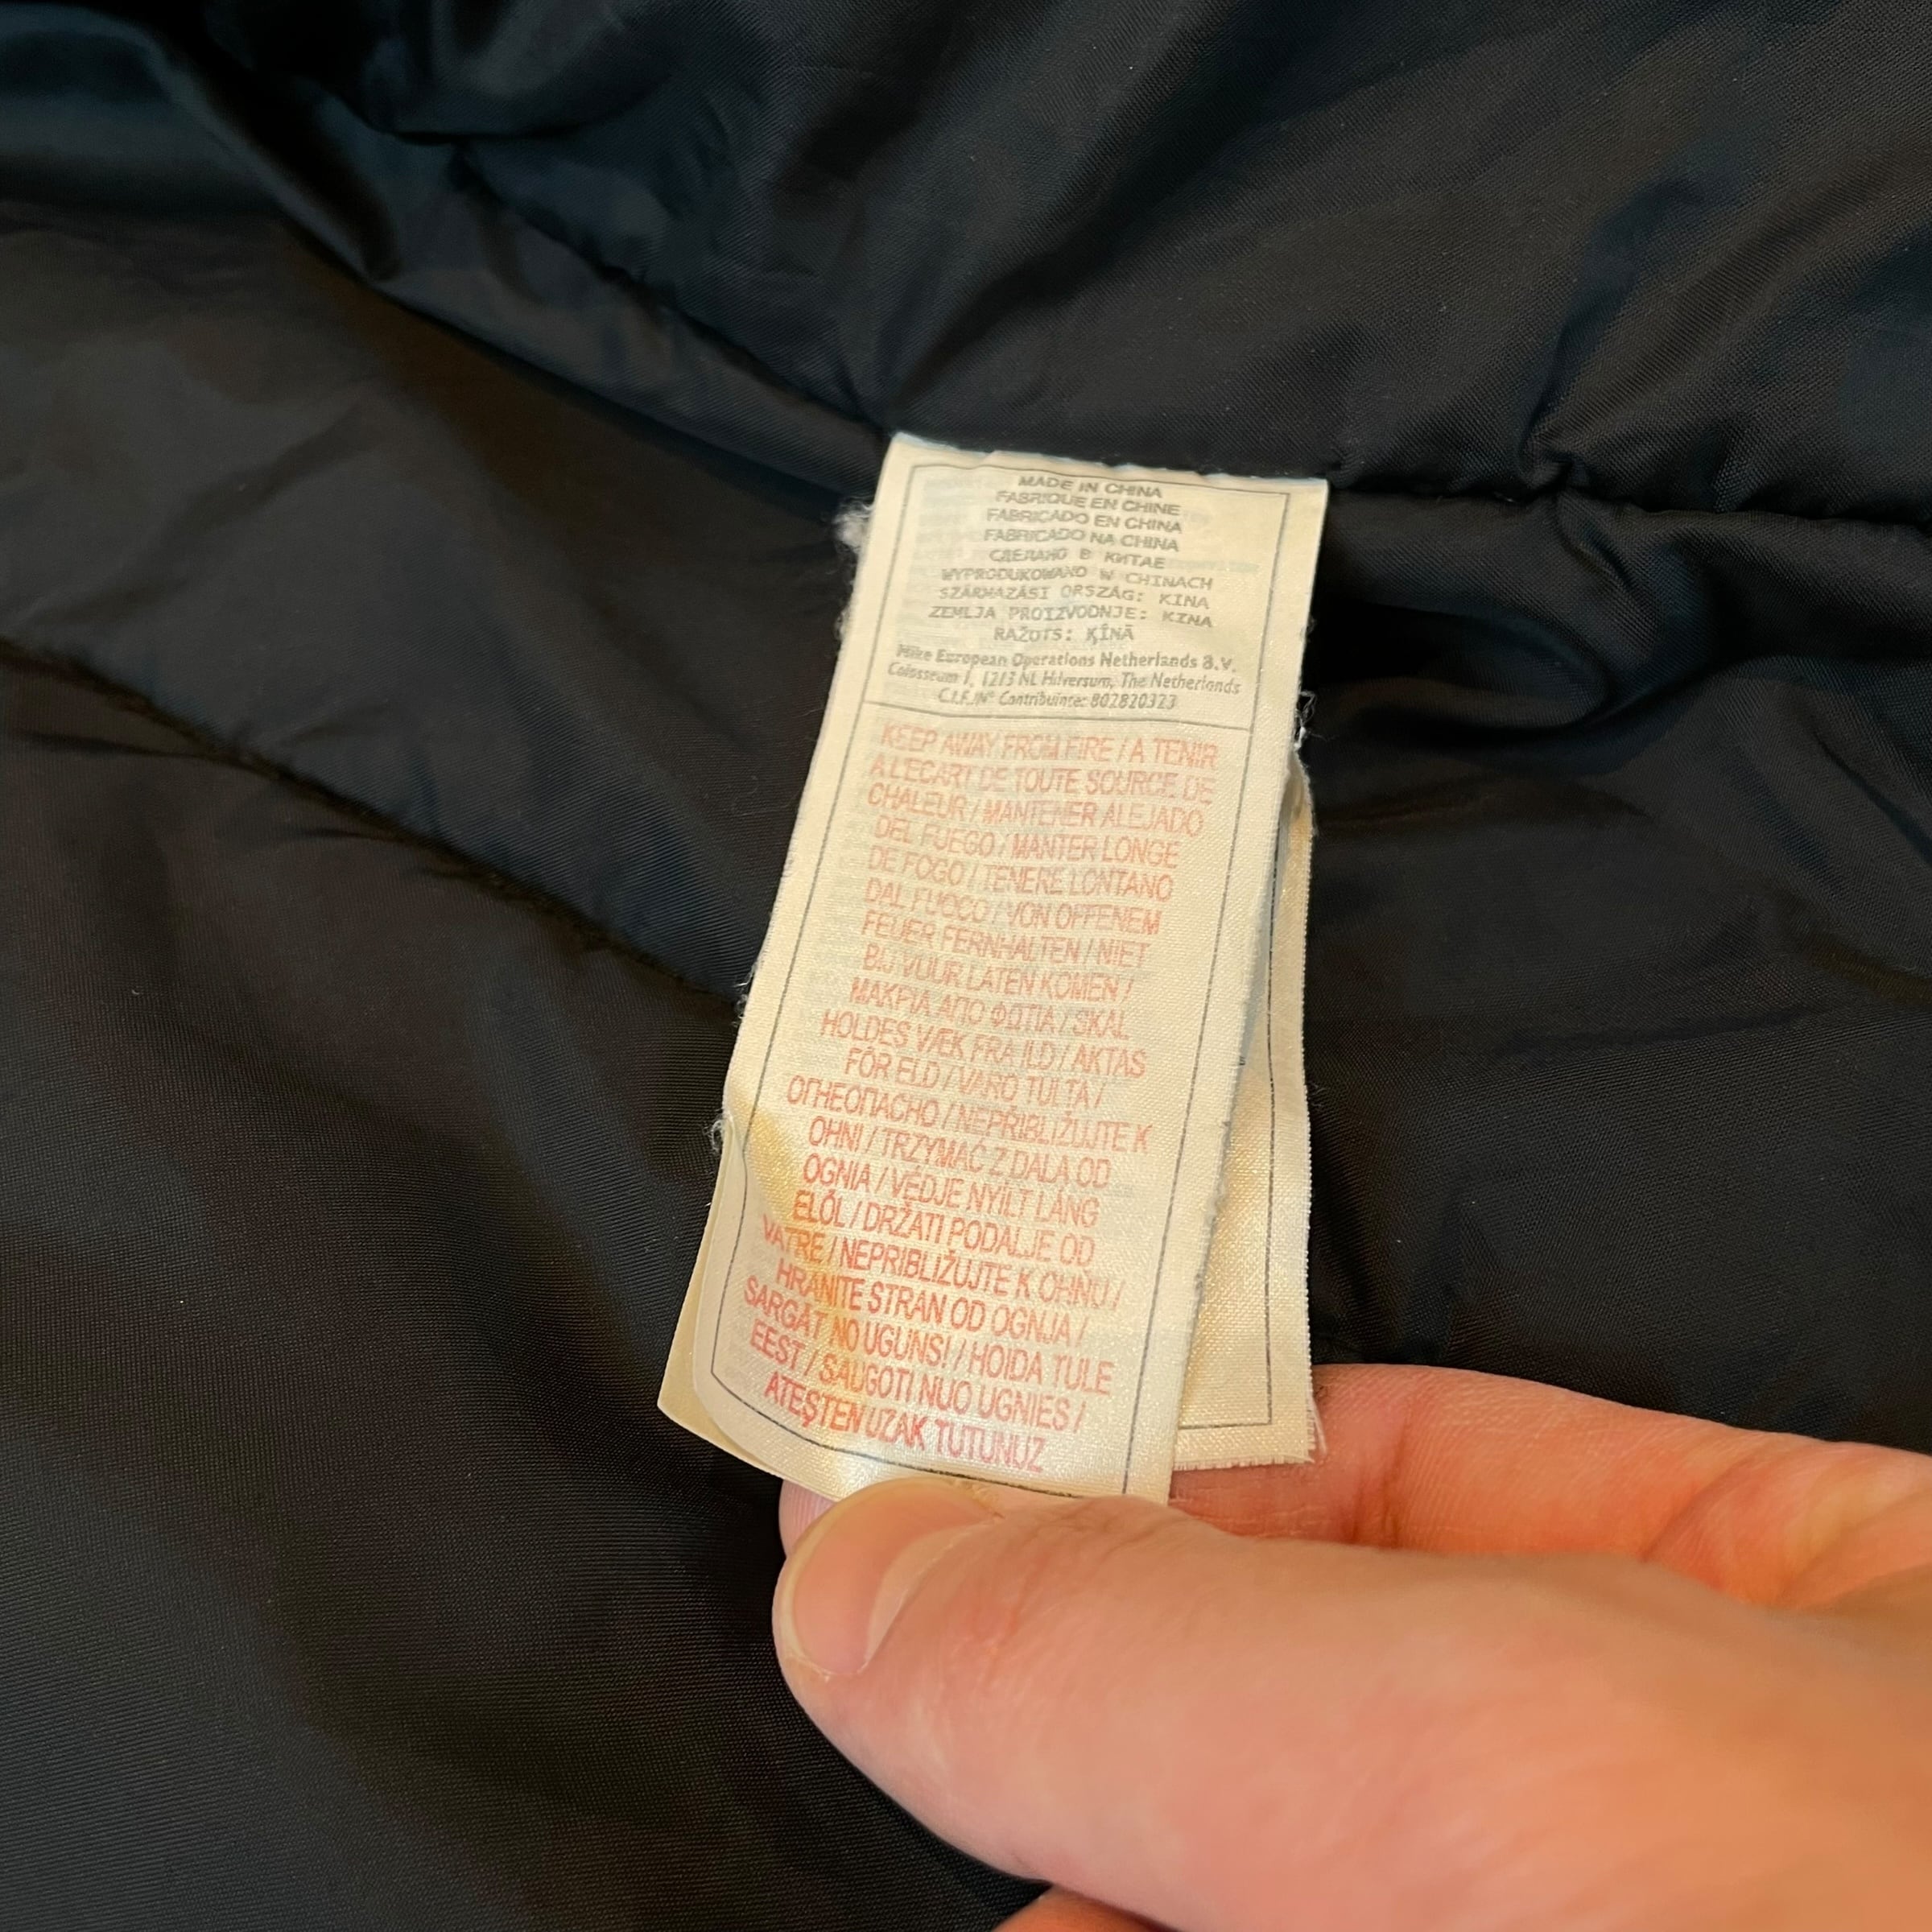 MADE IN CHINA
FABRIQUE EN CHINE
FABRICADO EN CHINA
FABRICADO NA CHINA
СДЕЛАНО В КИТАЕ
WYPRODUKOWANO W CHINACH
SZÁRMAZÁSI ORSZÁG: KINA
ZEMLJA PROIZVODNJE: KINA
RAŽOTS: ĶĪNĀ
Nike European Operations Netherlands B.V.
Colosseum 1, 1213 NL Hilversum, The Netherlands
C.I.F./Nº Contribuinte: 802820323
KEEP AWAY FROM FIRE / A TENIR
A L'ECART DE TOUTE SOURCE DE
CHALEUR / MANTENER ALEJADO
DEL FUEGO / MANTER LONGE
DE FOGO / TENERE LONTANO
DAL FUOCO / VON OFFENEM
FEUER FERNHALTEN / NIET
BIJ VUUR LATEN KOMEN /
ΜΑΚΡΙΑ ΑΠΟ ΦΩΤΙΑ / SKAL
HOLDES VÆK FRA ILD / AKTAS
FÖR ELD / VARO TULTA /
ОГНЕОПАСНО / NEPŘIBLIŽUJTE K
OHNI / TRZYMAĆ Z DALA OD
OGNIA / VÉDJE NYÍLT LÁNG
ELŐL / DRŽATI PODALJE OD
VATRE / NEPRIBLIŽUJTE K OHŇU /
HRANITE STRAN OD OGNJA /
SARGĀT NO UGUNS! / HOIDA TULE
EEST / SAUGOTI NUO UGNIES /
ATEŞTEN UZAK TUTUNUZ